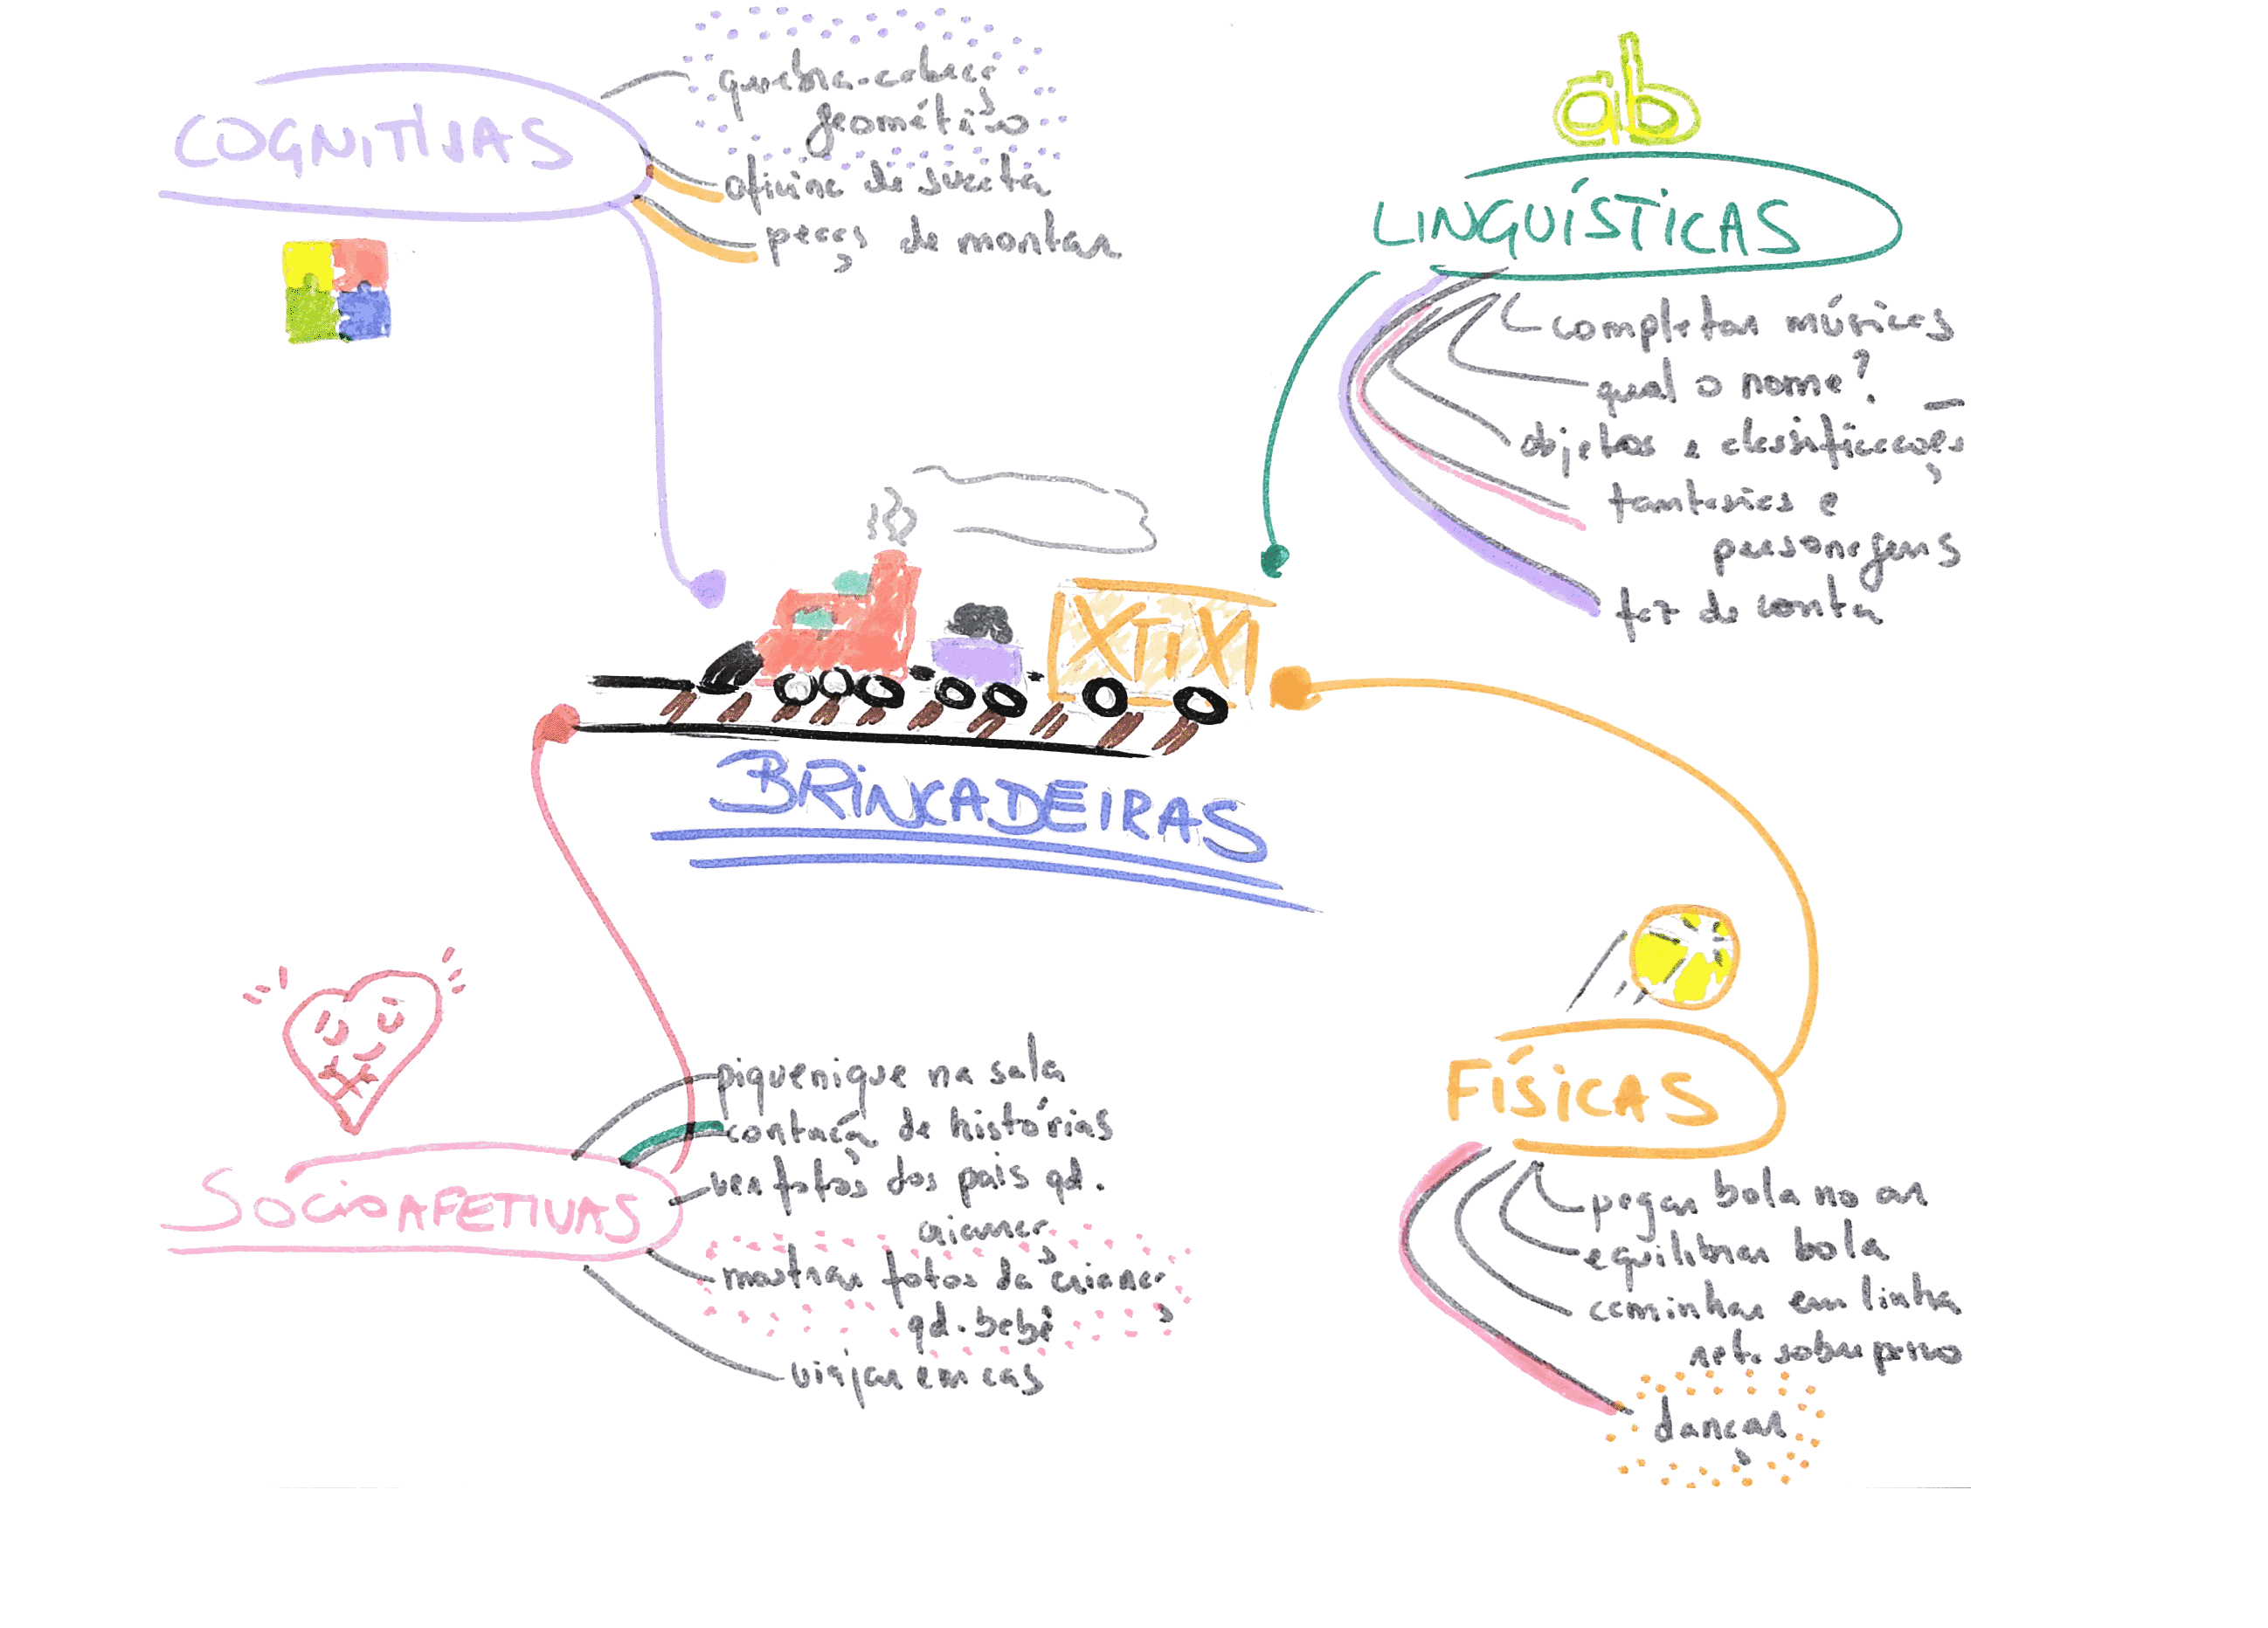 COGNITIVAS
quebra-cabeça
geométrico
oficina de sucata
peças de montar
ab
LINGUÍSTICAS
completar músicas
qual o nome?
objetos e classificações
fantasias e
personagens
faz de conta
XTIXI
BRINCADEIRAS
SOCIOAFETIVAS
piquenique na sala
contaçã de histórias
ver fotos dos pais qd.
criança
mostrar fotos da criança
qd. bebê
viajar em cas
FÍSICAS
pegar bola no ar
equilibrar bola
caminhar em linha
reta sobre
dançar